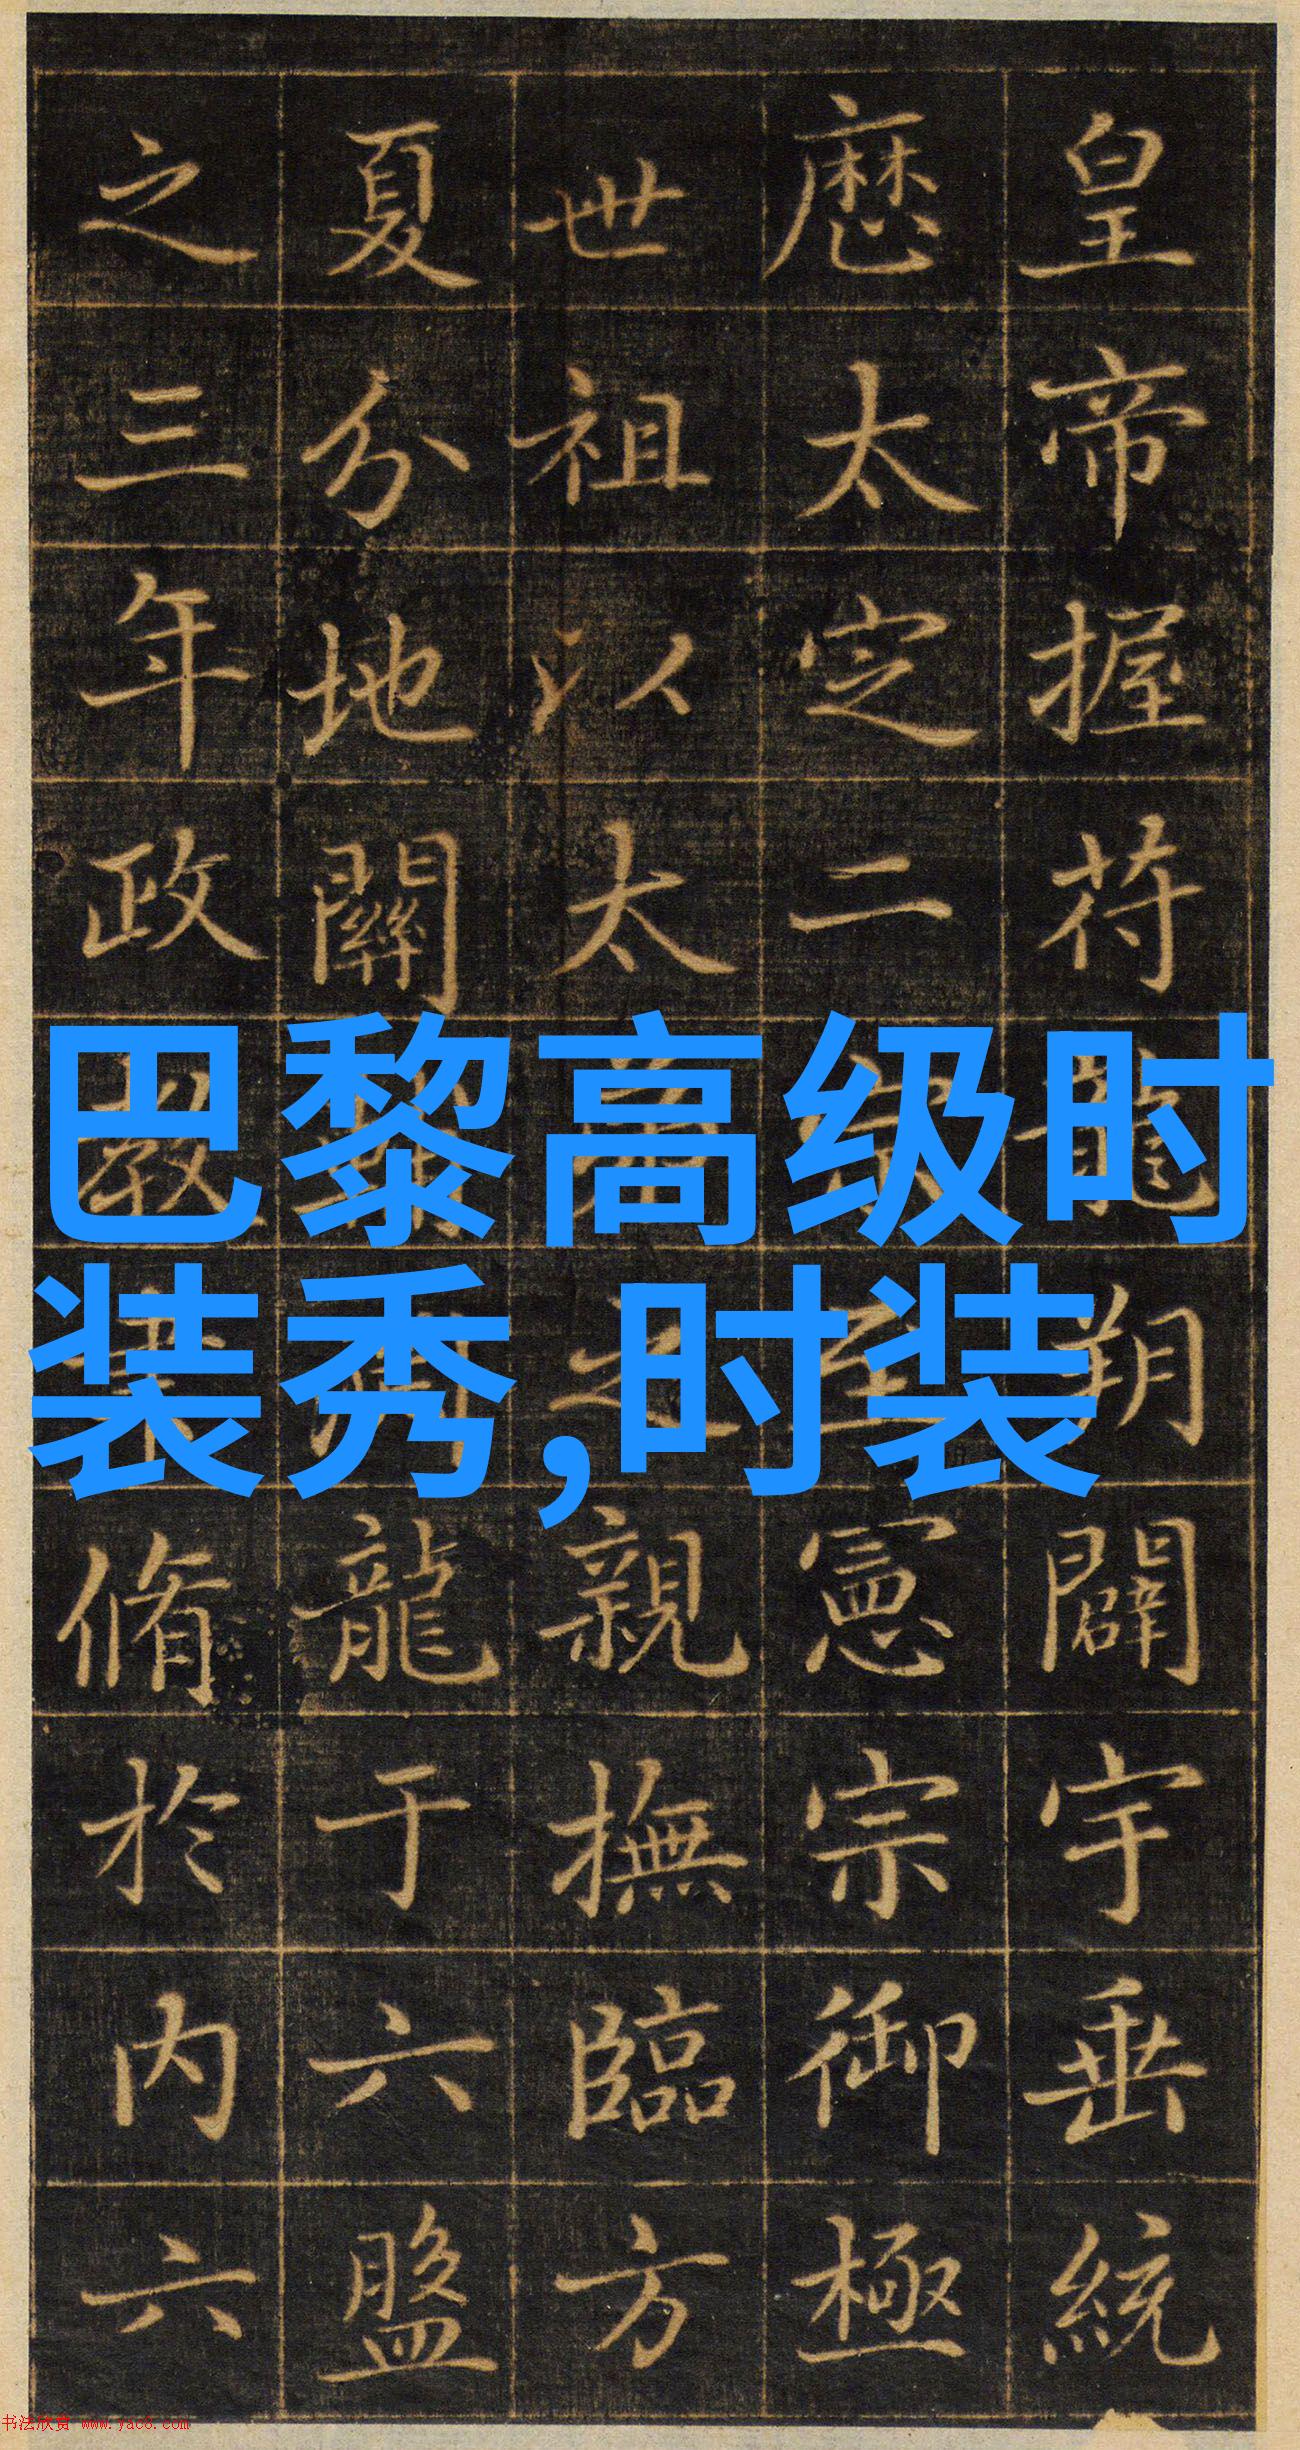 皇帝握符龍朔闢宇垂統
太定二至憲宗御極
世祖以太之親撫臨方
夏分地關龍于六盤
之三年政教脩於內六
巴黎高级时
装秀,时装
书法欣赏 www.yac8.com